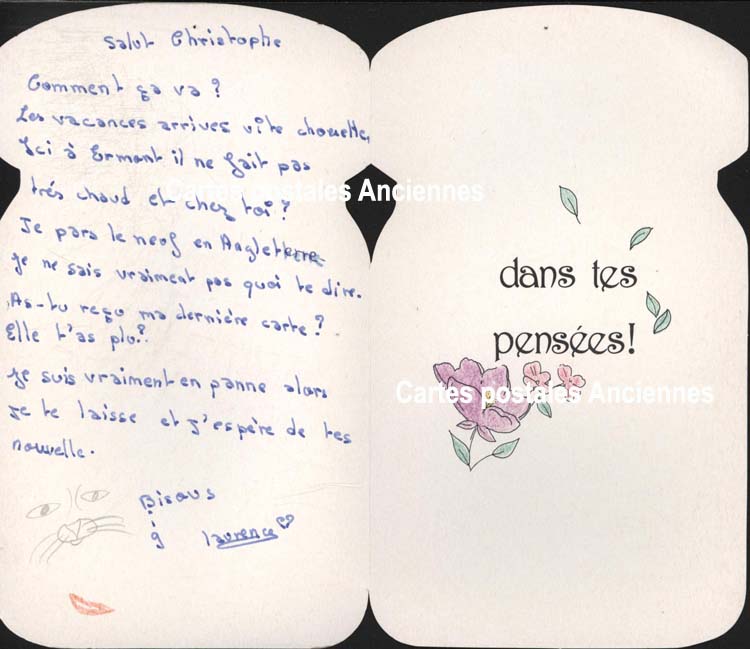 Salut Christophe
Comment ça va ?
Les vacances arrives vite chouette,
Ici à Ermont il ne fait pas
trés chaud et chez toi ?
Je pars le neuf en Angleterre
je ne sais vraiment pas quoi te dire.
As-tu reçu ma derniére carte ?
Elle t'as plu ?
je suis vraiment en panne alors
je te laisse et j'espère de tes
nouvelle.
Bisous
laurence
dans tes
pensées!
Cartes postales Anciennes
Cartes postales Anciennes